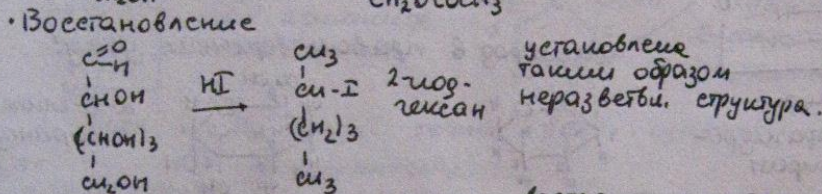 CH₂OCOCH₃
• Восстановление
C=O
H
CHOH
(CHOH)3
CH₂OH
HI
CH3
CH-I
(CH₂)3
CH3
2-иод-
гексан
установлена
таким образом
неразветвл. структура.